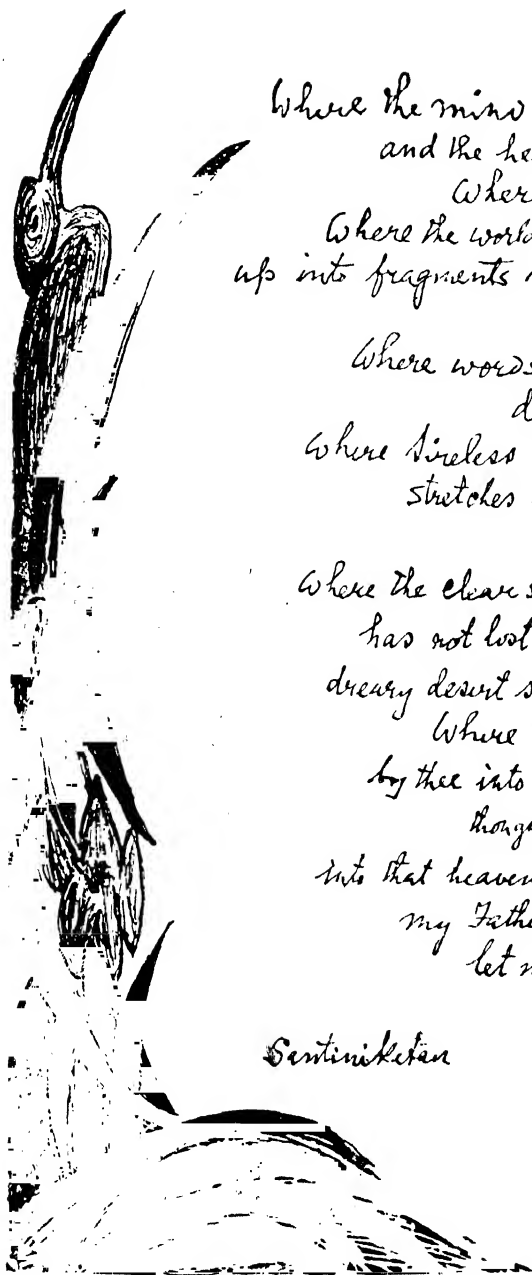 Where the mind
and the he
Wher
Where the world
up into fragments
Where words
d
Where tireless
stretches
Where the clear s
has not lost
dreary desert s
Where
by thee into
thoug
into that heaven
my Fathe
let m
Santiniketan